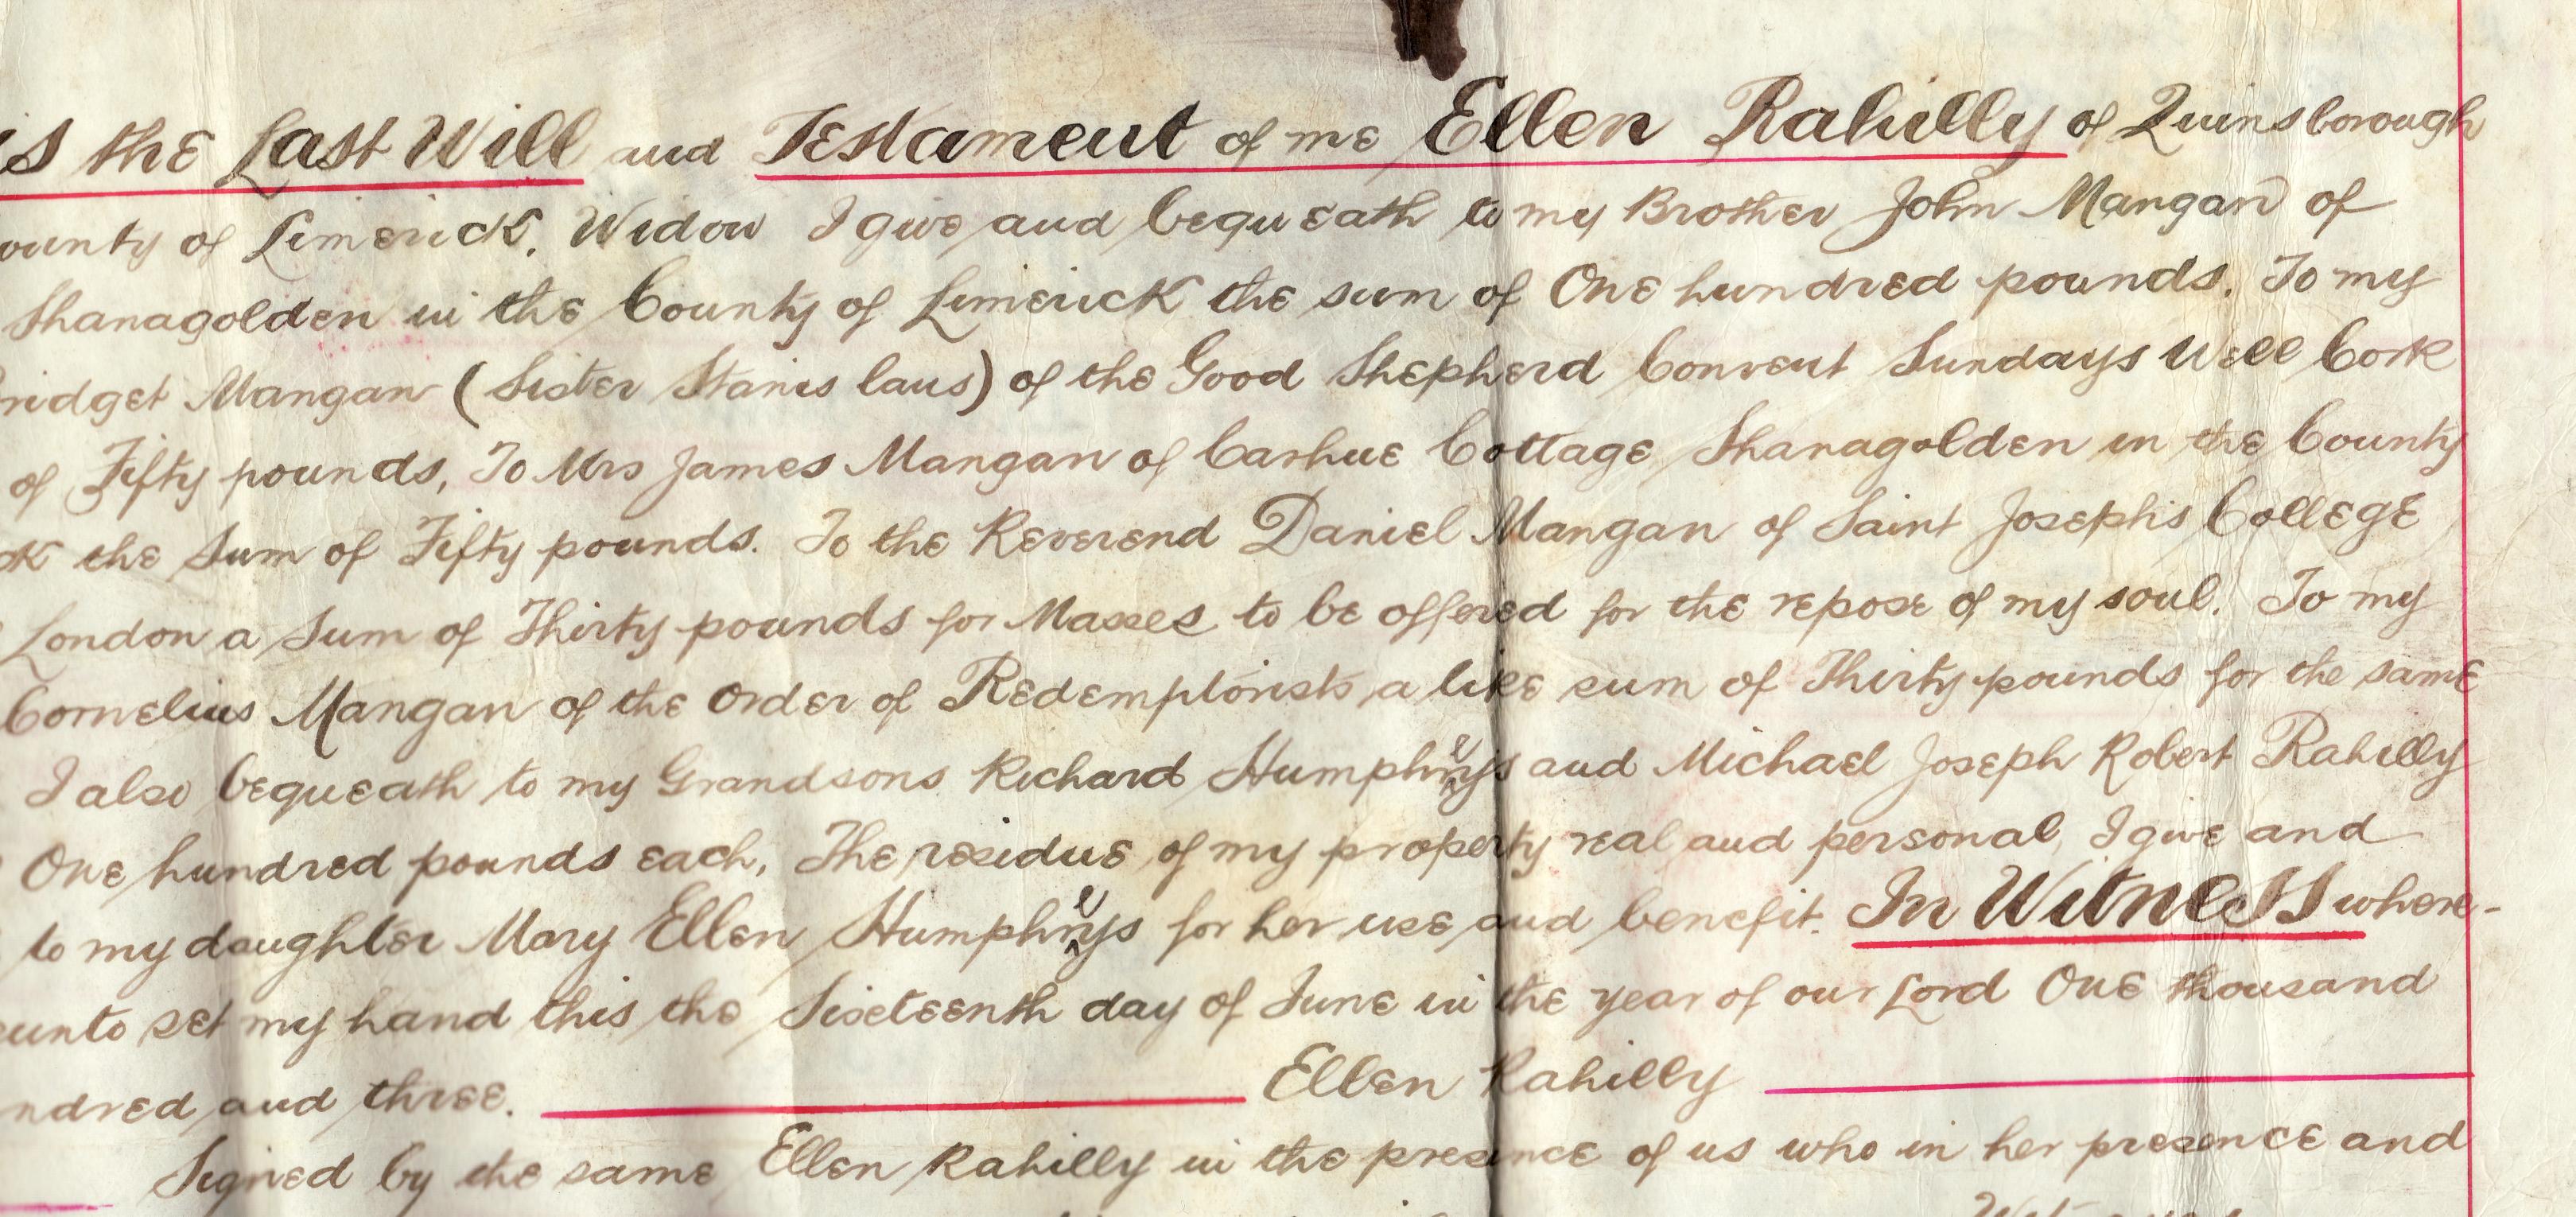 is the Last Will and Testament of me Ellen Rahilly of Quinsborough
ounty of Limerick, Widow I give and bequeath to my Brother John Mangan of
Shanagolden in the County of Limerick the sum of One hundred pounds. To my
ridget Mangan (Sister Stanislaus) of the Good Shepherd Convent Sundays Well Cork
of Fifty pounds, To Mrs James Mangan of Carhue Cottage Shanagolden in the County
ck the Sum of Fifty pounds. To the Reverend Daniel Mangan of Saint Joseph's College
London a Sum of Thirty pounds for Masses to be offered for the repose of my soul. To my
Cornelius Mangan of the Order of Redemptorists, a like sum of Thirty pounds for the same
I also bequeath to my Grandsons Richard Humphreys and Michael Joseph Robert Rahilly
One hundred pounds each, The residue of my property real and personal, I give and
to my daughter Mary Ellen Humphreys for her use and benefit. In Witness where-
unto set my hand this the Sixteenth day of June in the year of our Lord One thousand
ndred and three. Ellen Rahilly
Signed by the same Ellen Rahilly in the presence of us who in her presence and